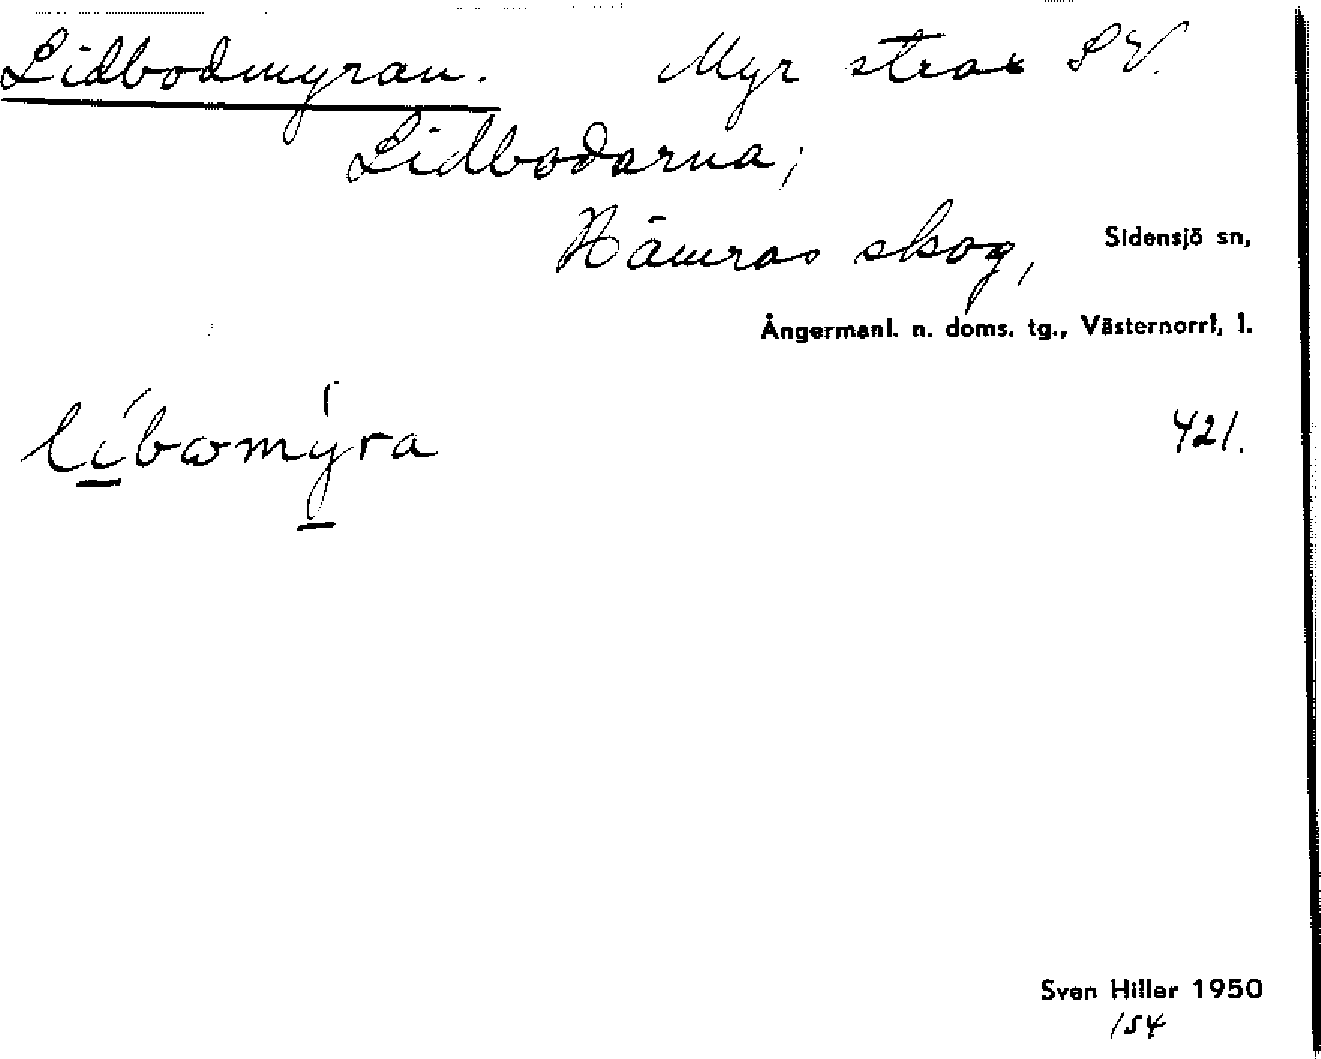 Lidbodmyran. Myr strax SV.
Lidbodarna;
Nämras skog, Sidensjö sn,
Ångermanl. n. doms. tg., Västernorrl. l.
líbωmýra 421.
Sven Hiller 1950
154